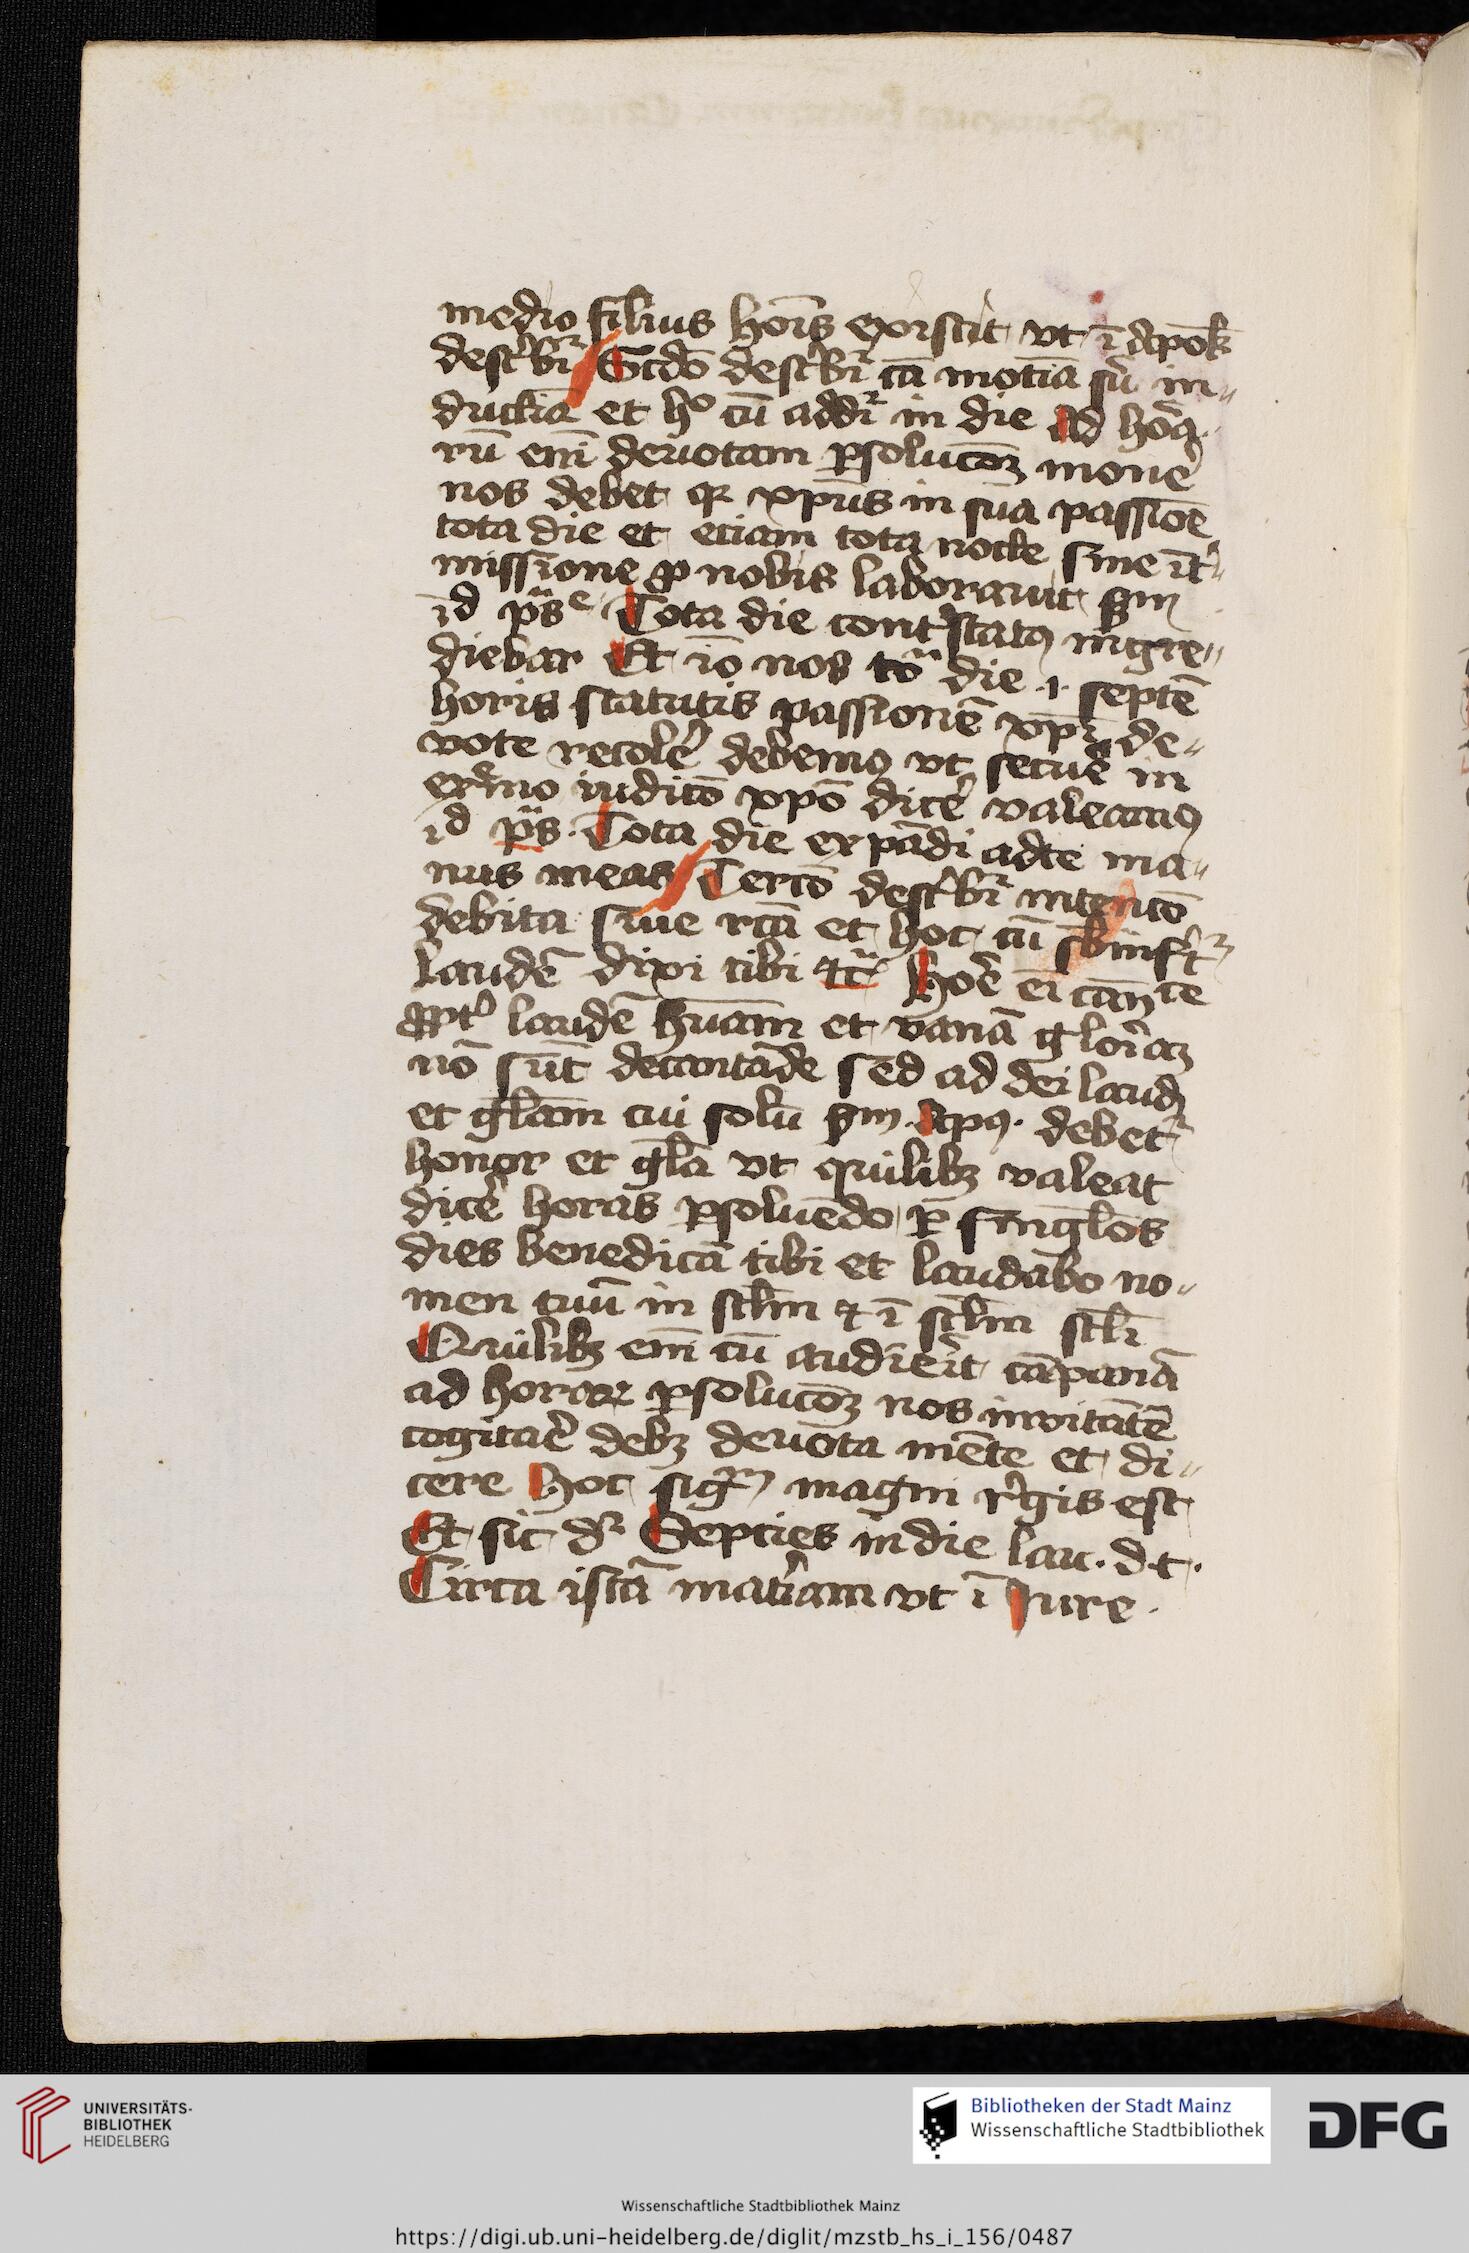 medio filius hoīs exiscit vt ī Apok
descͥbiᷣ Scd̄o descͥbiᷣ cā motiā in„
et hͦ cū addiᷣ in die Ad
rū em̄ deuotam ꝑsolucōꝫ moneᷣ
nos debet qꝛ xp̄us in sua passiōe
tota die et eciam tota nocte sine īt„
missione ꝓ nobis laborauit ẜm
id pͣsͤ Tota die contͥstatꝯ ingre„
diebar Et iō nos tōͣ die .i. septē
horis statutis passionē xpī de„
vote recoleᷣ debemꝯ vt secuͤ in
exͤmo iudicō xpō diceᷣ valeamꝯ
id pͣs. Tota die expādi ad te ma„
nus meas Tercō descͥbiᷣ intencō
debita siue rcā et hoc cū sb̄infẜtᷣ
laudē dixi tibi ⁊cͣ Hoē ei can̄ice
ꝓptᷣ laudē hūam et vanā gloriaꝫ
nō sūt decantāde sed ad dei laudꝫ
et gl̄am cui solū ẜm Apꝯ. debetᷣ
honor et gl̄a vt quilibꝫ valeat
diceᷣ horas ꝑsoluēdo ꝑ singl̄os
dies benedicā tibi et laudabo no„
men tuū in scl̄m ⁊ ī scl̄m scl̄i
Quilibꝫ em̄ cū audieͥt cāpanā
ad horaꝝ ꝑsolucōꝫ nos invitātē
cogitaᷣe debꝫ deuota mēte et di„
cere Hoc sigᷠ magni rͤgis est
Et sic dᷣ Septies in die lau. d. t.
Circa istā matͥiam vt ī Iure.
UNIVERSITÄTS-
BIBLIOTHEK
HEIDELBERG
Bibliotheken der Stadt Mainz
Wissenschaftliche Stadtbibliothek
DFG
Wissenschaftliche Stadtbibliothek Mainz
https://digi.ub.uni-heidelberg.de/diglit/mzstb_hs_i_156/0487